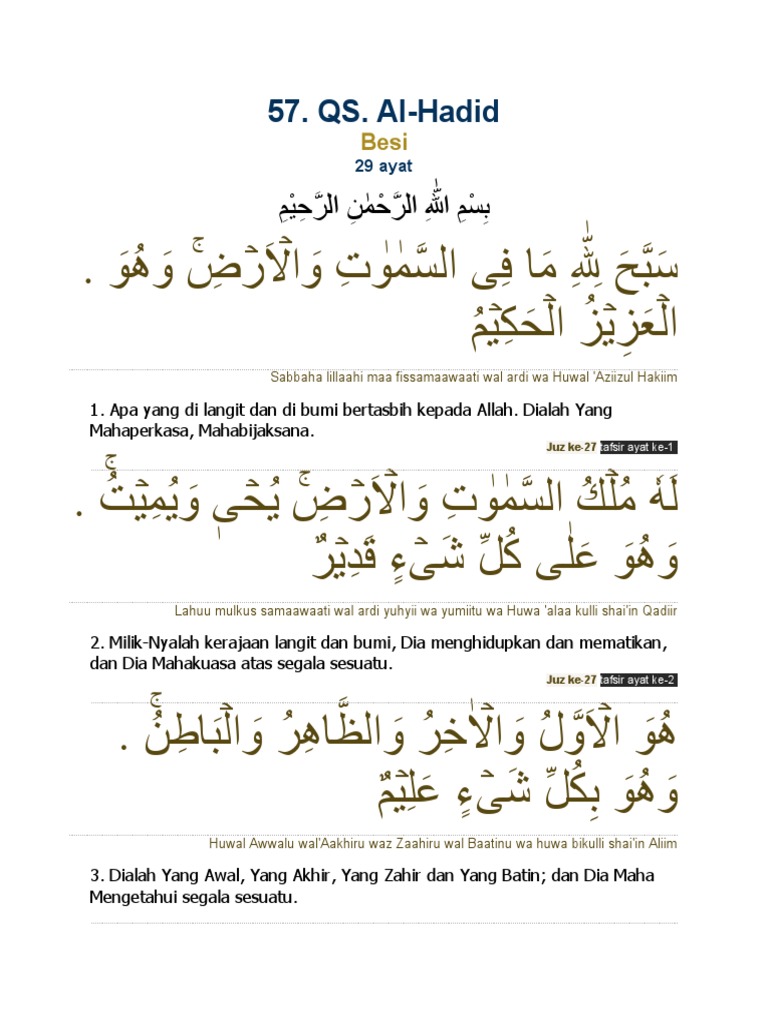 57. QS. Al-Hadid
Besi
29 ayat
بِسْمِ اللّٰهِ الرَّحْمٰنِ الرَّحِيْمِ
سَبَّحَ لِلّٰهِ مَا فِى السَّمٰوٰتِ وَالۡاَرۡضِ‌ۚ وَهُوَ .
الۡعَزِيۡزُ الۡحَكِيۡمُ
Sabbaha lillaahi maa fissamaawaati wal ardi wa Huwal 'Aziizul Hakiim
1. Apa yang di langit dan di bumi bertasbih kepada Allah. Dialah Yang
Mahaperkasa, Mahabijaksana.
Juz ke-27 tafsir ayat ke-1
لَهٗ مُلۡكُ السَّمٰوٰتِ وَالۡاَرۡضِ‌ۚ يُحۡىٖ وَيُمِيۡتُ‌ۚ .
وَهُوَ عَلٰى كُلِّ شَىۡءٍ قَدِيۡرٌ
Lahuu mulkus samaawaati wal ardi yuhyii wa yumiitu wa Huwa 'alaa kulli shai'in Qadiir
2. Milik-Nyalah kerajaan langit dan bumi, Dia menghidupkan dan mematikan,
dan Dia Mahakuasa atas segala sesuatu.
Juz ke-27 tafsir ayat ke-2
هُوَ الۡاَوَّلُ وَالۡاٰخِرُ وَالظَّاهِرُ وَالۡبَاطِنُ‌ۚ .
وَهُوَ بِكُلِّ شَىۡءٍ عَلِيۡمٌ
Huwal Awwalu wal'Aakhiru waz Zaahiru wal Baatinu wa huwa bikulli shai'in Aliim
3. Dialah Yang Awal, Yang Akhir, Yang Zahir dan Yang Batin; dan Dia Maha
Mengetahui segala sesuatu.